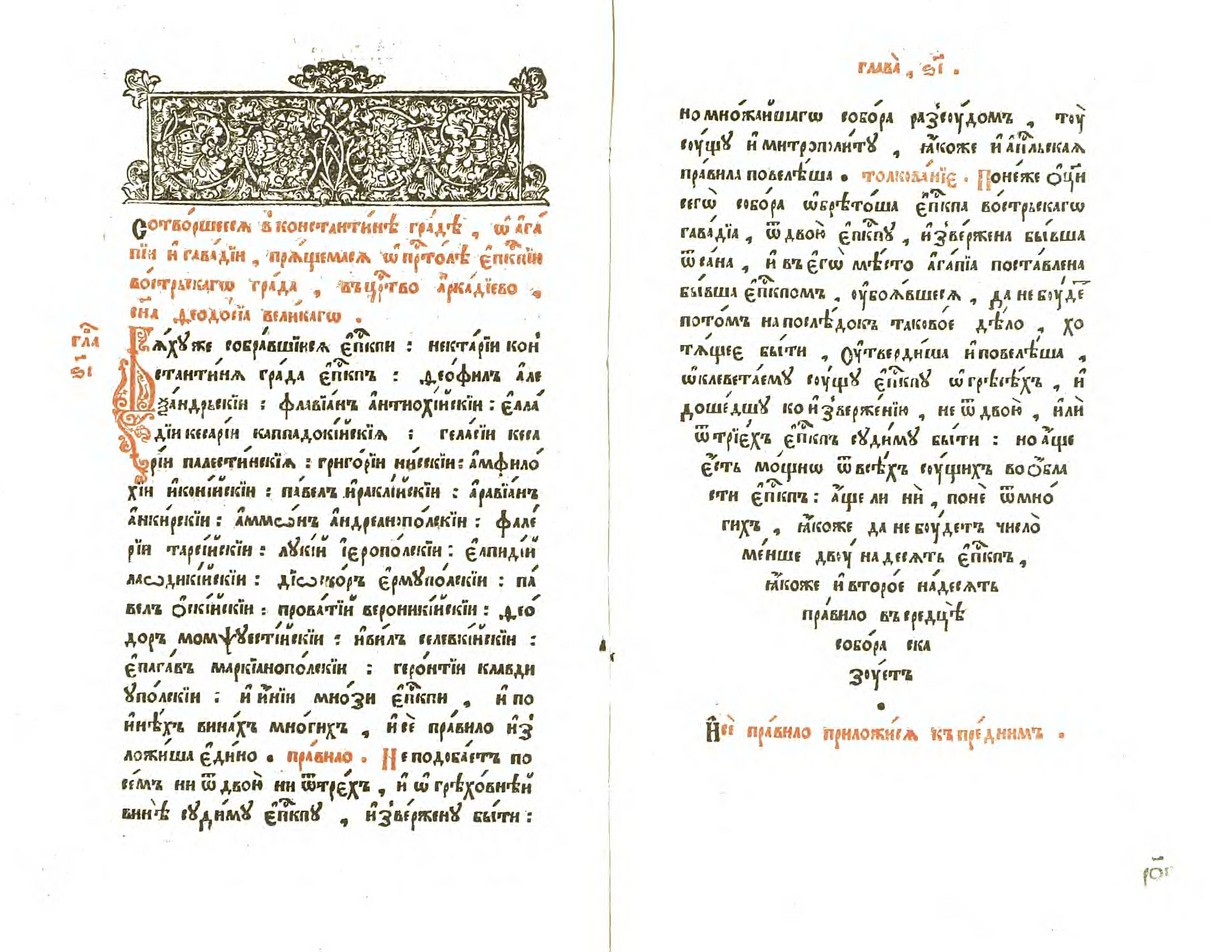 Сотво́ршееся в̾ константи́нѣ гра́дѣ , ѡ҆ а҆га́
пі́и и҆ гава́дїи , пря́щемася ѡ҆ прⷭ҇то́лѣ є҆пⷭ҇кпїи
во́стрьскагѡ гра́да , въ црⷭ҇тво а҆рка́дїево ,
сн҃а ѳеодо́сїа вели́кагѡ .
гла҃
ѕ҃і
Бя́хꙋ же собра́вшїися є҆пⷭ҇кпи : некта́рїи кон
стантиня гра́да є҆пⷭ҇кпъ : ѳео́филъ але
ѯа́ндрьскїи : флавїа́нъ а҆нтиохі́йскїи : є҆лла́
дїи кесарі́и каппадокі́йскїя : гела́сїи кеса
рі́и палести́нскїя : григо́рїи ни́сскїи : а҆мфило́
хїи и҆коні́йскїи : па́велъ и҆раклі́йскїи : а҆равїа́нъ
а҆нки́рскїи : а҆ммѡ́нъ а҆ндреанопо́лскїи : фале́
рїи тарсі́йскїи : лꙋкі́й і҆еропо́лскїи : є҆лпиді́й
лаѡдикі́йскїи : дїѡско́ръ є҆рмꙋпо́лскїи : па́
велъ ѻ҆скі́йскїи : прова́тїй вероникі́йскїи : ѳео́
доръ момѱꙋесті́йскїи : и҆ви́лъ селевкі́йскїи :
є҆пага́въ маркїанопо́лскїи : геро́нтїи клавди
ꙋпо́лскїи : и҆ и҆ні́и мно́зи є҆пⷭ҇кпи , и҆ по
и҆нѣ́хъ вина́хъ мно́гихъ , и҆ сѐ пра́вило и҆з̾
ложи́ша є҆ди́но . пра́вило . Не подоба́етъ по
се́мъ ни ѿ двою̀ ни ѿ тре́хъ , и҆ ѡ҆ грѣхо́внѣй
винѣ̀ сꙋди́мꙋ є҆пⷭ҇кпꙋ , и҆зве́рженꙋ бы́ти :
глава̀ , ѕ҃і .
но мно́жайшагѡ собо́ра раз̾сꙋ́домъ , тоу̀
сꙋ́щꙋ и҆ митрополи́тꙋ , ꙗ҆́коже и҆ а҆пⷭ҇льская
пра́вила повелѣ́ша . толкова́нїе . Поне́же ѻ҆ц҃и
сегѡ̀ собо́ра ѡ҆брѣто́ша є҆пⷭ҇кпа во́стрьскагѡ
гава́дїа , ѿ двою̀ є҆пⷭ҇кпꙋ , и҆зве́ржена бы́вша
ѿ са́на , и҆ въ є҆гѡ̀ мѣ́сто а҆га́пїа поста́влена
бы́вша є҆пⷭ҇кпомъ , оу҆боя́вшеся , да не бꙋ́де
пото́мъ на послѣ́докъ таково́е дѣ́ло , хо
тя́щее бы́ти , Оу҆тверди́ша и҆ повелѣ́ша ,
ѡ҆клевета́емꙋ сꙋ́щꙋ є҆пⷭ҇кпꙋ ѡ҆ грѣсѣ́хъ , и҆
доше́дшꙋ ко и҆з̾верже́нїю , не ѿ двою̀ , и҆лѝ
ѿ трїе́хъ є҆пⷭ҇кпъ сꙋди́мꙋ бы́ти : но а҆́ще
є҆́сть мо́щнѡ ѿ всѣ́хъ сꙋ́щихъ во ѻ҆́бла
сти є҆пⷭ҇кпъ : а҆́ще ли нѝ , понѐ ѿ мно́
гихъ , ꙗ҆́коже да не бꙋ́детъ число̀
ме́нше двоу̀ на́десять є҆пⷭ҇кпъ ,
ꙗ҆́коже и҆ второ́е на́десять
пра́вило въ средцѣ̀
собо́ра ска
зꙋ́етъ
.
И҆ сѐ пра́вило приложи́ся къ пре́днимъ .